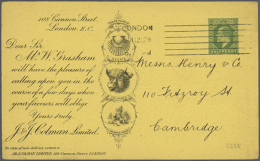 108 Cannon Street,
London, E.C.
Dear Sir,
Mr. W. Grasham
will have the pleasure of
calling upon you in the
course of a few days when
your favours will oblige
Yours truly,
J & J Colman Limited.
LONDON
Messrs Henry & Co
110 Fitzroy St
Cambridge